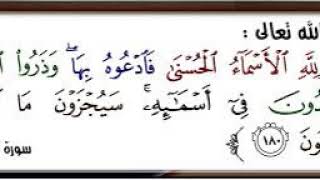 الله تعالى :
لِلَّهِ الْأَسْمَاءُ الْحُسْنَىٰ فَادْعُوهُ بِهَا ۖ وَذَرُوا
دُونَ فِي أَسْمَائِهِ ۚ سَيُجْزَوْنَ مَا
ونَ ﴿١٨٠﴾ سورة